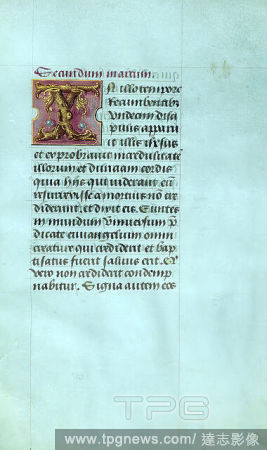 Secundum marcum.
In illo tempore
Recumbentibus
undecim disci
pulis apparu
it illis ihesus
et exprobrauit incredulitatē
illorum et duriciam cordis
quia hijs qui uiderant eum
resurrexisse a mortuis non cre
diderunt, et dixit eis. Euntes
in mundum vniuersum p̄
dicate euuangelium omni
creature qui crediderit et bap
tisatus fuerit saluus erit. Qui
vero non crediderit condemp
nabitur. Signa autem eos
TPG
www.tpgnews.com / 達志影像